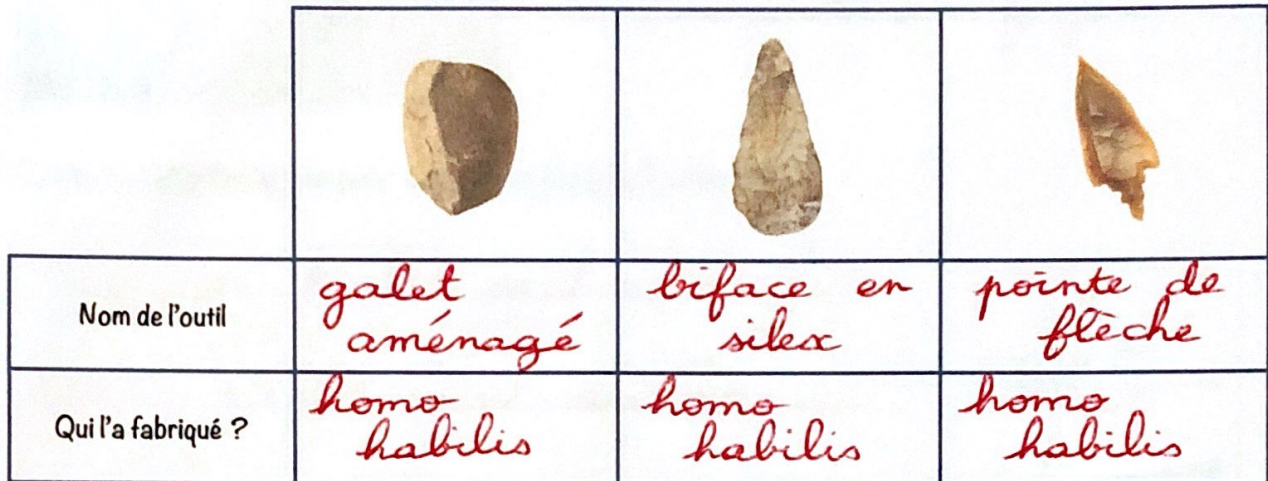 Nom de l'outil
galet
aménagé
biface en
silex
pointe de
flèche
Qui l'a fabriqué ?
homo
habilis
homo
habilis
homo
habilis